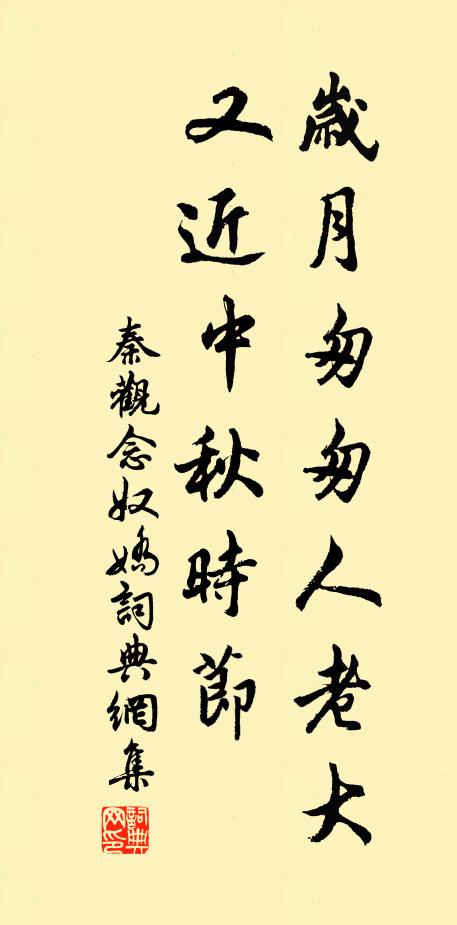 歲月匆匆人老大
又近中秋時節
秦觀念奴嬌詞典網集
詞典网印